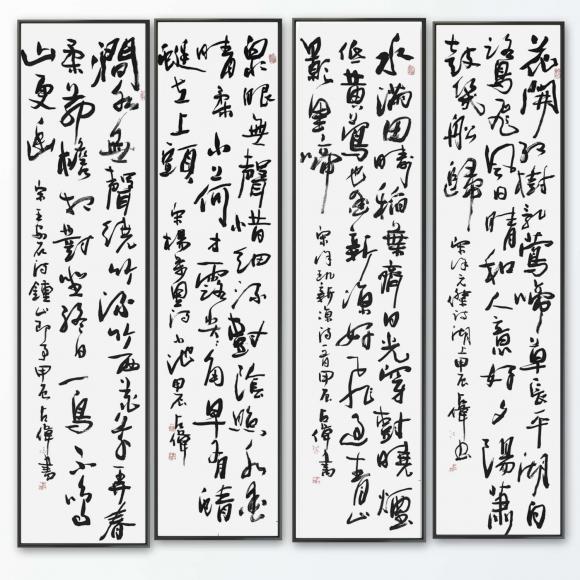 花開红樹乱鶯啼草長平湖白
鷺飛風日晴和人意好夕陽簫
鼓幾船歸
宋徐元傑詩湖上甲辰占偉书
水滿田疇稻葉齊日光穿樹曉煙
低黄鶯也爱新凉好飛過青山
影里啼
宋徐玑新凉诗一首甲辰占偉書
泉眼無聲惜细流樹陰照水爱
晴柔小荷才露尖尖角早有蜻
蜓立上頭
宋楊萬里诗小池甲辰占偉
澗水無聲繞竹流竹西花草弄春
柔茅檐相對坐終日一鳥不鳴
山更幽
宋王安石诗鍾山即事甲辰占偉書